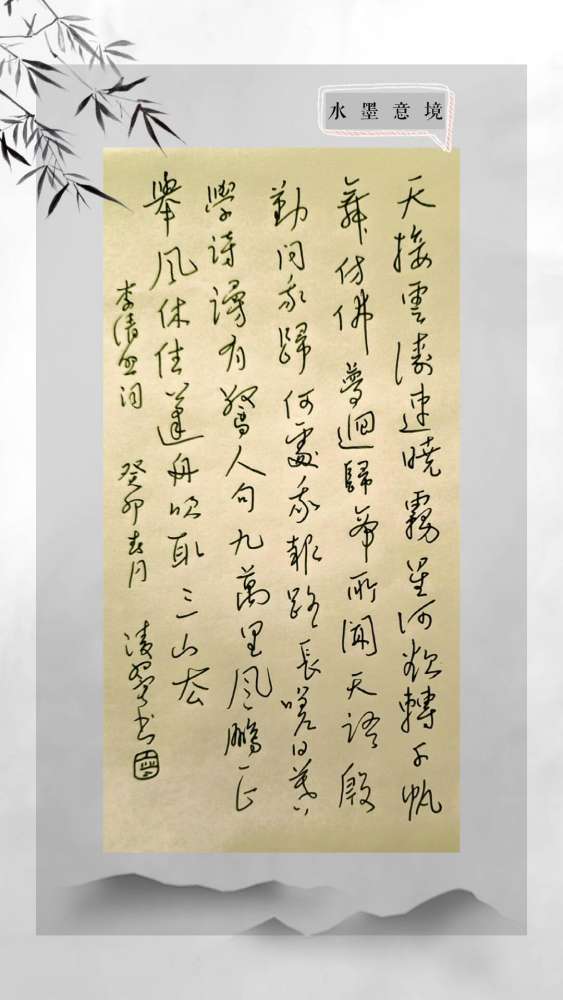 水墨意境
天接雲濤連曉霧星河欲轉千帆
舞仿佛夢迴歸帝所聞天語殷
勤問我歸何處我報路長嗟日暮
學詩謾有驚人句九萬里風鵬正
舉風休住蓬舟吹取三山去
李清照词 癸卯春月 凌书